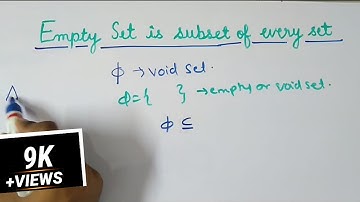 Empty Set is subset of every set
ϕ → void set.
ϕ = {    } → empty or void set.
A
ϕ ⊆
9K
+VIEWS